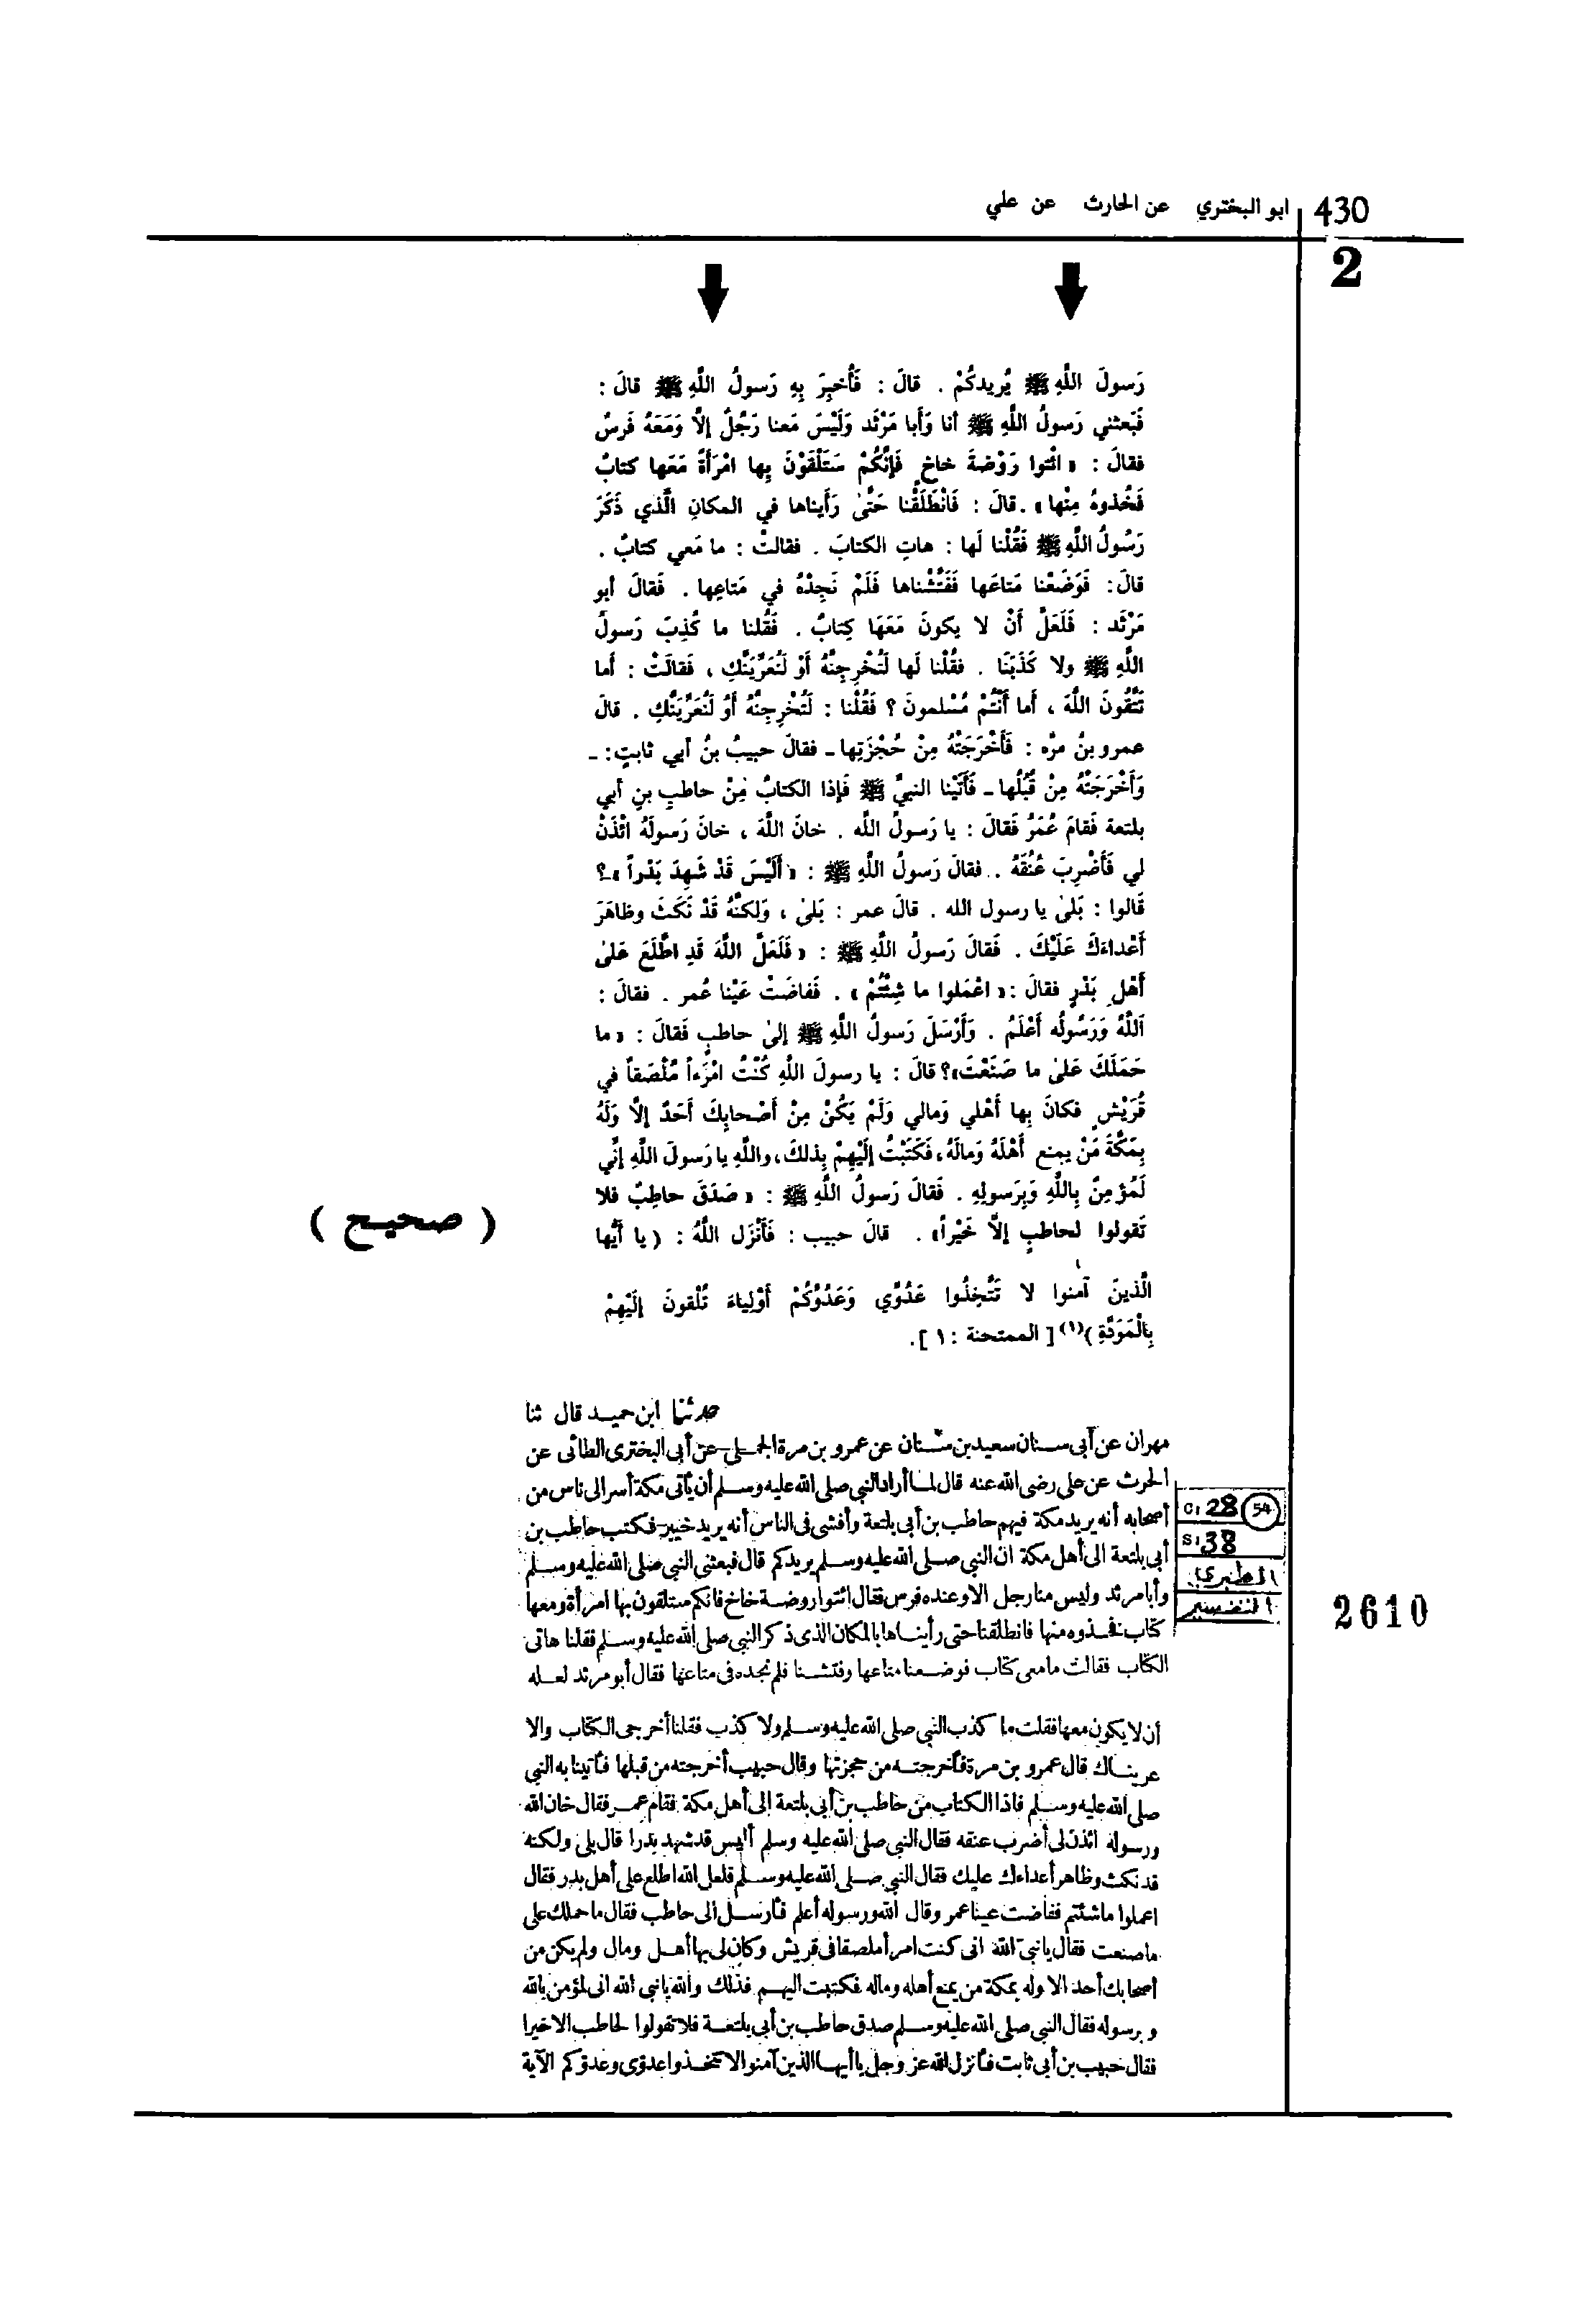 430 ابو البختري عن الحارث عن علي
2
رَسولَ اللَّهِ ﷺ يُريدكُمْ . قالَ : فَأُخبِرَ بِهِ رَسولُ اللَّهِ ﷺ قالَ :
فَبَعثني رَسولُ اللَّهِ ﷺ أنا وَأَبا مَرْثَد وَلَيْسَ مَعنا رَجُلٌ إلَّا وَمَعَهُ فَرسٌ
فقالَ : « ائْتوا رَوْضةَ خاخٍ فَإنَّكُمْ سَتَلْقَوْنَ بِها امْرَأةً مَعَها كتابٌ
فَخُذوهُ مِنْها » . قالَ : فَانْطَلَقْنا حَتَّىٰ رَأَيناها في المكانِ الَّذي ذَكَرَ
رَسُولُ اللَّهِ ﷺ فَقُلْنا لَها : هاتِ الكتابَ . فقالتْ : ما مَعي كتابٌ .
قالَ : فَوَضَعْنا مَتاعَها فَفَتَّشْناها فَلَمْ نَجِدْهُ في مَتاعِها . فَقالَ أبو
مَرْثَد : فَلَعَلَّ أَنْ لا يكونَ مَعَها كِتابٌ . فَقُلنا ما كُذِبَ رَسولُ
اللَّهِ ﷺ ولا كَذَبَنَا . فقُلْنا لَها لَتُخْرِجِنَّهُ أوْ لَنُعَرِّيَنَّكِ ، فَقالَتْ : أما
تَتَّقُونَ اللَّهَ ، أما أَنْتُمْ مُسْلمونَ ؟ فَقُلْنا : لَتُخْرِجِنَّهُ أوْ لَنُعَرِّيَنَّكِ . قالَ
عمرو بنُ مرَّه : فَأَخْرَجَتْهُ مِنْ حُجْزَتِها ـ فقالَ حبيبُ بنُ أبي ثابتٍ : ـ
وَأَخْرَجَتْهُ مِنْ قُبُلُها ـ فَأَتَيْنا النبيَّ ﷺ فَإذا الكتابُ مِنْ حاطبِ بنِ أبي
بلتعة فَقامَ عُمَرُ فَقالَ : يا رَسولُ الله . خانَ اللَّهَ ، خانَ رَسولَهُ ائْذَنْ
لي فَأَضْرِبَ عُنُقَهُ . . فقالَ رَسولُ اللَّهِ ﷺ : « أَلَيْسَ قَدْ شَهِدَ بَدْراً » ؟
قَالوا : بَلىٰ يا رسول الله . قالَ عمر : بَلىٰ ، وَلكنَّهُ قَدْ نَكَثَ وظاهَرَ
أَعْداءَكَ عَلَيْكَ . فَقالَ رَسولُ اللَّهِ ﷺ : « فَلَعَلَّ اللَّهَ قَدِ اطَّلَعَ عَلىٰ
أَهْلِ بَدْرٍ فقالَ : « اعْمَلوا ما شِئْتُمْ » . فَفاضَتْ عَيْنا عُمر . فقالَ :
اَللَّهُ وَرَسُولُه أَعْلَمُ . وَأَرْسَلَ رَسولُ اللَّهِ ﷺ إلىٰ حاطبٍ فَقالَ : « ما
حَمَلَكَ عَلىٰ ما صَنَعْتَ » ؟ قالَ : يا رسولَ اللَّهِ كُنْتُ امْرَءاً مُلْصَقاً في
قُرَيْشٍ فكانَ بِها أَهْلي وَمالي وَلَمْ يَكُنْ مِنْ أَصْحابِكَ أَحَدٌ إلَّا وَلَهُ
بِمَكَّةَ مَنْ يمنع أَهْلَهُ وَمالَهُ ، فَكَتَبْتُ إلَيْهِمْ بِذلكَ ، واللَّهِ يا رَسولَ اللَّهِ إنِّي
لَمُؤمِنٌ بِاللَّهِ وَبِرَسولِهِ . فَقالَ رَسولُ اللَّهِ ﷺ : « صَدَقَ حاطِبٌ فلا
تَقولوا لحاطبٍ إلَّا خَيْراً » . قالَ حبيب : فَأَنْزَل اللَّهُ : ( يا أيُّها
( صحيح )
الَّذينَ آمنوا لا تَتَّخِذُوا عَدُوِّي وَعَدُوَّكُمْ أَوْلِياءَ تُلْقونَ إلَيْهِمْ
بِالْمَوَدَّةِ )(١) [ الممتحنة : ١ ] .
حدثنا ابن حميد قال ثنا
مهران عن أبي سنان سعيد بن سنان عن عمرو بن مرة الجملي عن أبي البختري الطائى عن
الحرث عن على رضى الله عنه قال لما أراد النبي صلى الله عليه وسلم أن يأتى مكة أسر الى ناس من
أصحابه أنه يريد مكة فيهم حاطب بن أبى بلتعة وأفشى فى الناس أنه يريد خيبر فكتب حاطب بن
أبى بلتعة الى أهل مكة ان النبي صلى الله عليه وسلم يريدكم قال فبعثنى النبي صلى الله عليه وسلم
وأبا مرثد وليس منا رجل الا وعنده فرس فقال ائتوا روضة خاخ فانكم ستلقون بها امرأة ومعها
كتاب فخذوه منها فانطلقنا حتى رأيناها بالمكان الذى ذكر النبي صلى الله عليه وسلم فقلنا هاتى
الكتاب فقالت ما معى كتاب فوضعنا متاعها وفتشنا فلم نجده فى متاعها فقال أبو مرثد لعله
C: 28 54
S: 38
الطبري
التفسير
2610
أن لا يكون معها فقلت ما كذب النبي صلى الله عليه وسلم ولا كذب فقلنا أخرجى الكتاب والا
عريناك قال عمرو بن مرة فأخرجته من حجزتها وقال حبيب أخرجته من قبلها فأتينا به النبي
صلى الله عليه وسلم فاذا الكتاب من حاطب بن أبى بلتعة الى أهل مكة فقام عمر فقال خان الله
ورسوله ائذن لى أضرب عنقه فقال النبي صلى الله عليه وسلم أليس قد شهد بدرا قال بلى ولكنه
قد نكث وظاهر أعداءك عليك فقال النبي صلى الله عليه وسلم فلعل الله اطلع على أهل بدر فقال
اعملوا ما شئتم ففاضت عينا عمر وقال الله ورسوله أعلم فأرسل الى حاطب فقال ما حملك على
ما صنعت فقال يا نبي الله انى كنت امرأ ملصقا فى قريش وكان لى بها أهل ومال ولم يكن من
أصحابك أحد الا وله بمكة من يمنع أهله وماله فكتبت اليهم فذلك والله يا نبى الله انى لمؤمن بالله
وبرسوله فقال النبي صلى الله عليه وسلم صدق حاطب بن أبى بلتعة فلا تقولوا لحاطب الا خيرا
فقال حبيب بن أبى ثابت فأنزل الله عز وجل يا أيها الذين آمنوا لا تتخذوا عدوى وعدوكم الآية